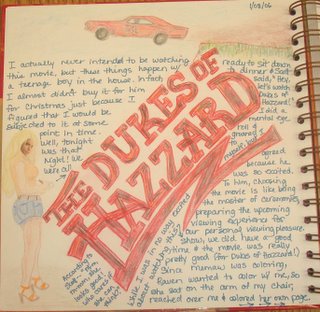 1/08/06
I actually never intended to be watching
this movie, but these things happen w/
a teenage boy in the house. In fact,
I almost didn't buy it for him
for Christmas just because I
figured that I would be
subjected to it at some
point in time.
Well, tonight
was that
night! We
were all
ready to sit down
to dinner & Scott
said, "Hey,
let's watch
Dukes of
Hazzard!"
I did a
mental eye
roll &
groaned to
myself, but I
agreed
because he
was so excited.
To him, choosing
the movie is like being
the master of ceremonies,
preparing the upcoming
viewing experience for
our personal viewing pleasure.
While I was in no way excited
about watching this
show, we did have a good
time & the movie was really
pretty good (for Dukes of Hazzard!)
Since mamaw was coloring,
Raven wanted to color w/ me, so
she sat on the arm of my chair,
reached over me & colored her own page.
THE DUKES OF
HAZZARD
According to